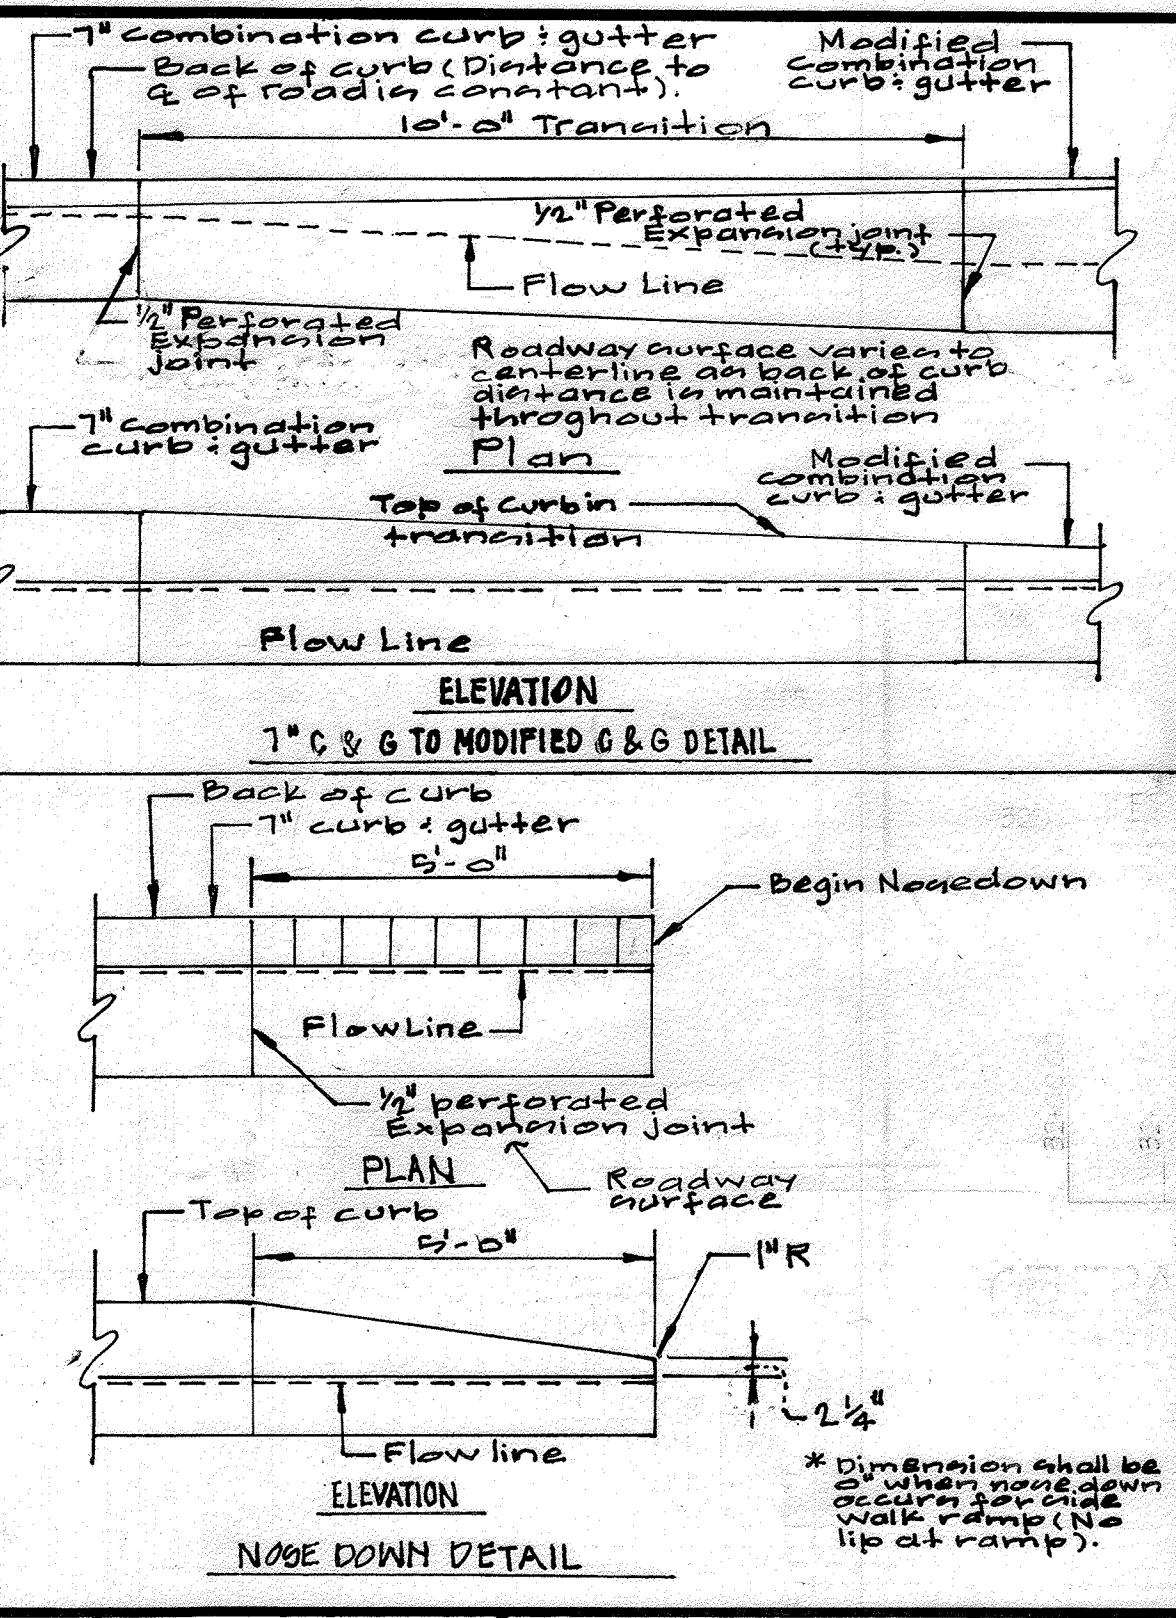 7" Combination curb & gutter
Back of curb (Distance to
℄ of road is constant).
Modified
combination
curb & gutter
10'-0" Transition
1/2" Perforated
Expansion joint
(typ.)
Flow Line
1/2" Perforated
Expansion
joint
Roadway surface varies to
centerline as back of curb
distance is maintained
throghout transition
Plan
7" Combination
curb & gutter
Modified
combination
curb & gutter
Top of Curb in
transition
Flow Line
ELEVATION
7" C & G TO MODIFIED C & G DETAIL
Back of curb
7" curb & gutter
5'-0"
Begin Nosedown
Flow Line
1/2" perforated
Expansion joint
PLAN
Roadway
surface
Top of curb
5'-0"
1" R
2 1/4"
Flow line
ELEVATION
* Dimension shall be
0" when nose down
occurs for side
walk ramp (No
lip at ramp).
NOSE DOWN DETAIL